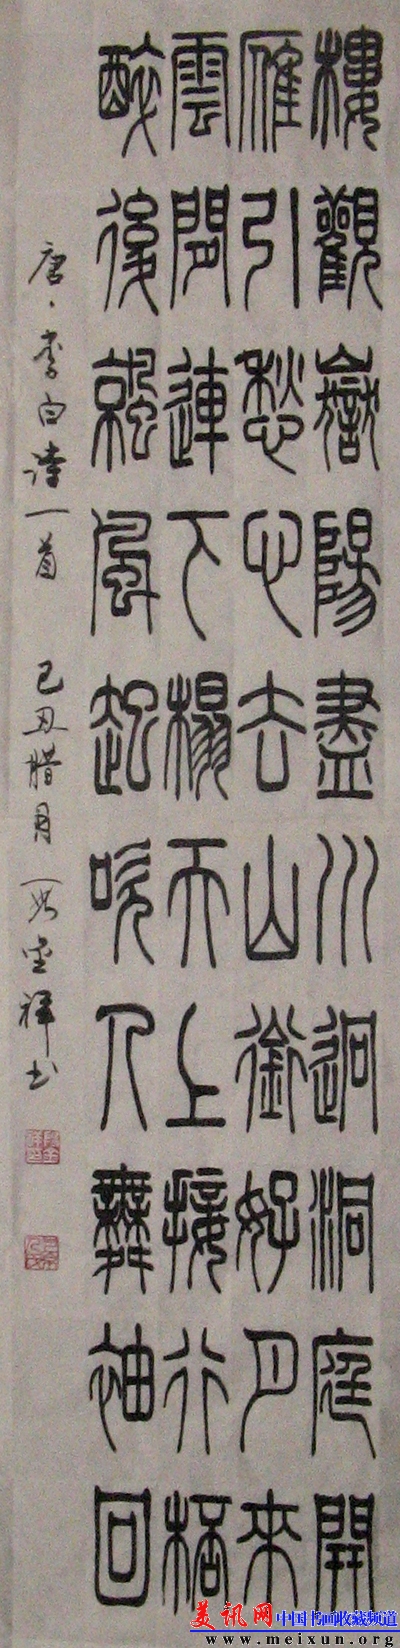 樓觀嶽陽盡川迥洞庭開
雁引愁心去山銜好月來
雲間連下榻天上接行桮
醉後涼風起吹人舞袖回
唐、李白诗一首 己丑腊月 段金祥书
美讯网 中国书画收藏频道
www.meixun.org